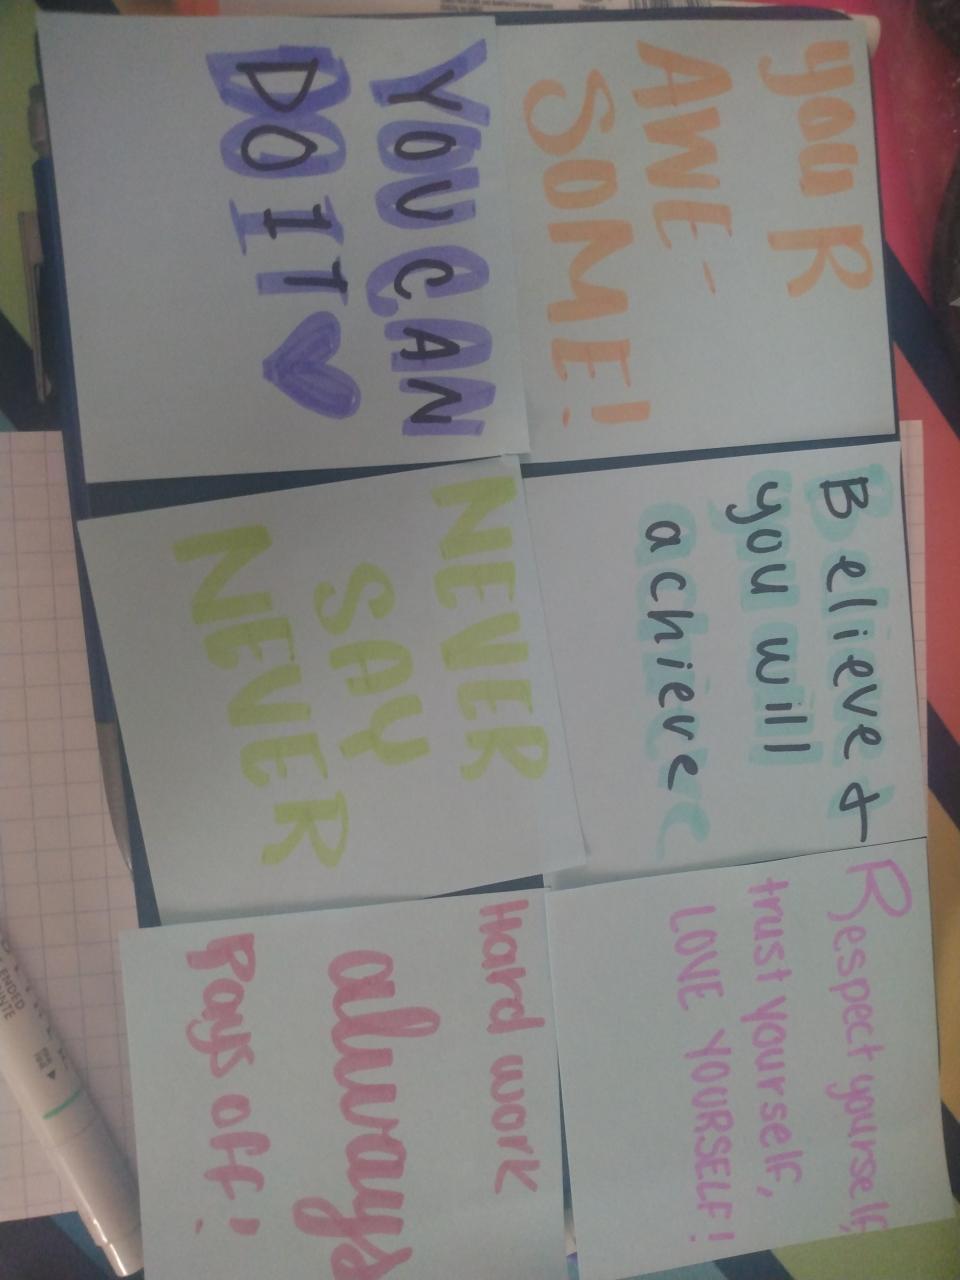 you R
AWE-
SOME!
Believe &
you will
achieve
Respect yourself,
trust yourself,
LOVE YOURSELF!
YOU CAN
DO IT
NEVER
SAY
NEVER
Hard work
always
Pays off!
ENDED